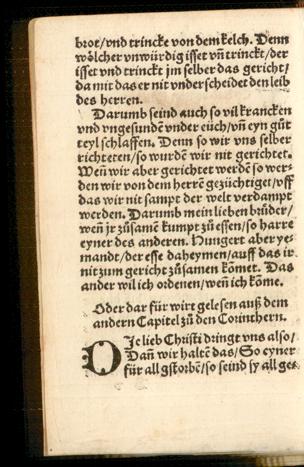 brot/vnd trincke von dem kelch. Denn
wölcher vnwürdig isset vn̄ trinckt/der
isset vnd trinckt jm selber das gericht/
da mit das er nit vnderscheidet den leib
des herren.
Darumb seind auch so vil krancken
vnd vngesunden̄ vnder eüch/vn̄ eyn gůt
teyl schlaffen. Denn so wir vns selber
richteten/so wurdē wir nit gerichtet.
Weñ wir aber gerichtet werdē so wer-
den wir von dem herrē gezüchtiget/vff
das wir nit sampt der welt verdampt
werden. Darumb mein lieben brüder/
weñ jr zůsamē kumpt zů essen/so harre
eyner des anderen. Hungert aber ye-
mandt/der esse daheymen/auff das ir
nit zum gericht zůsamen kōmet. Das
ander wil ich ordenen/weñ ich kōme.
Oder dar für wirt gelesen auß dem
andern Capitel zů den Corinthern.
DJe lieb Christi dringt vns also/
Dañ wir haltē das/So eyner
für all gstorbē/so seind sy all ges